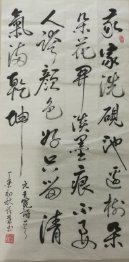 我家洗硯池邊樹朵
朵花開淡墨痕不要
人誇顏色好只留清
氣滿乾坤
元王冕詩
初秋